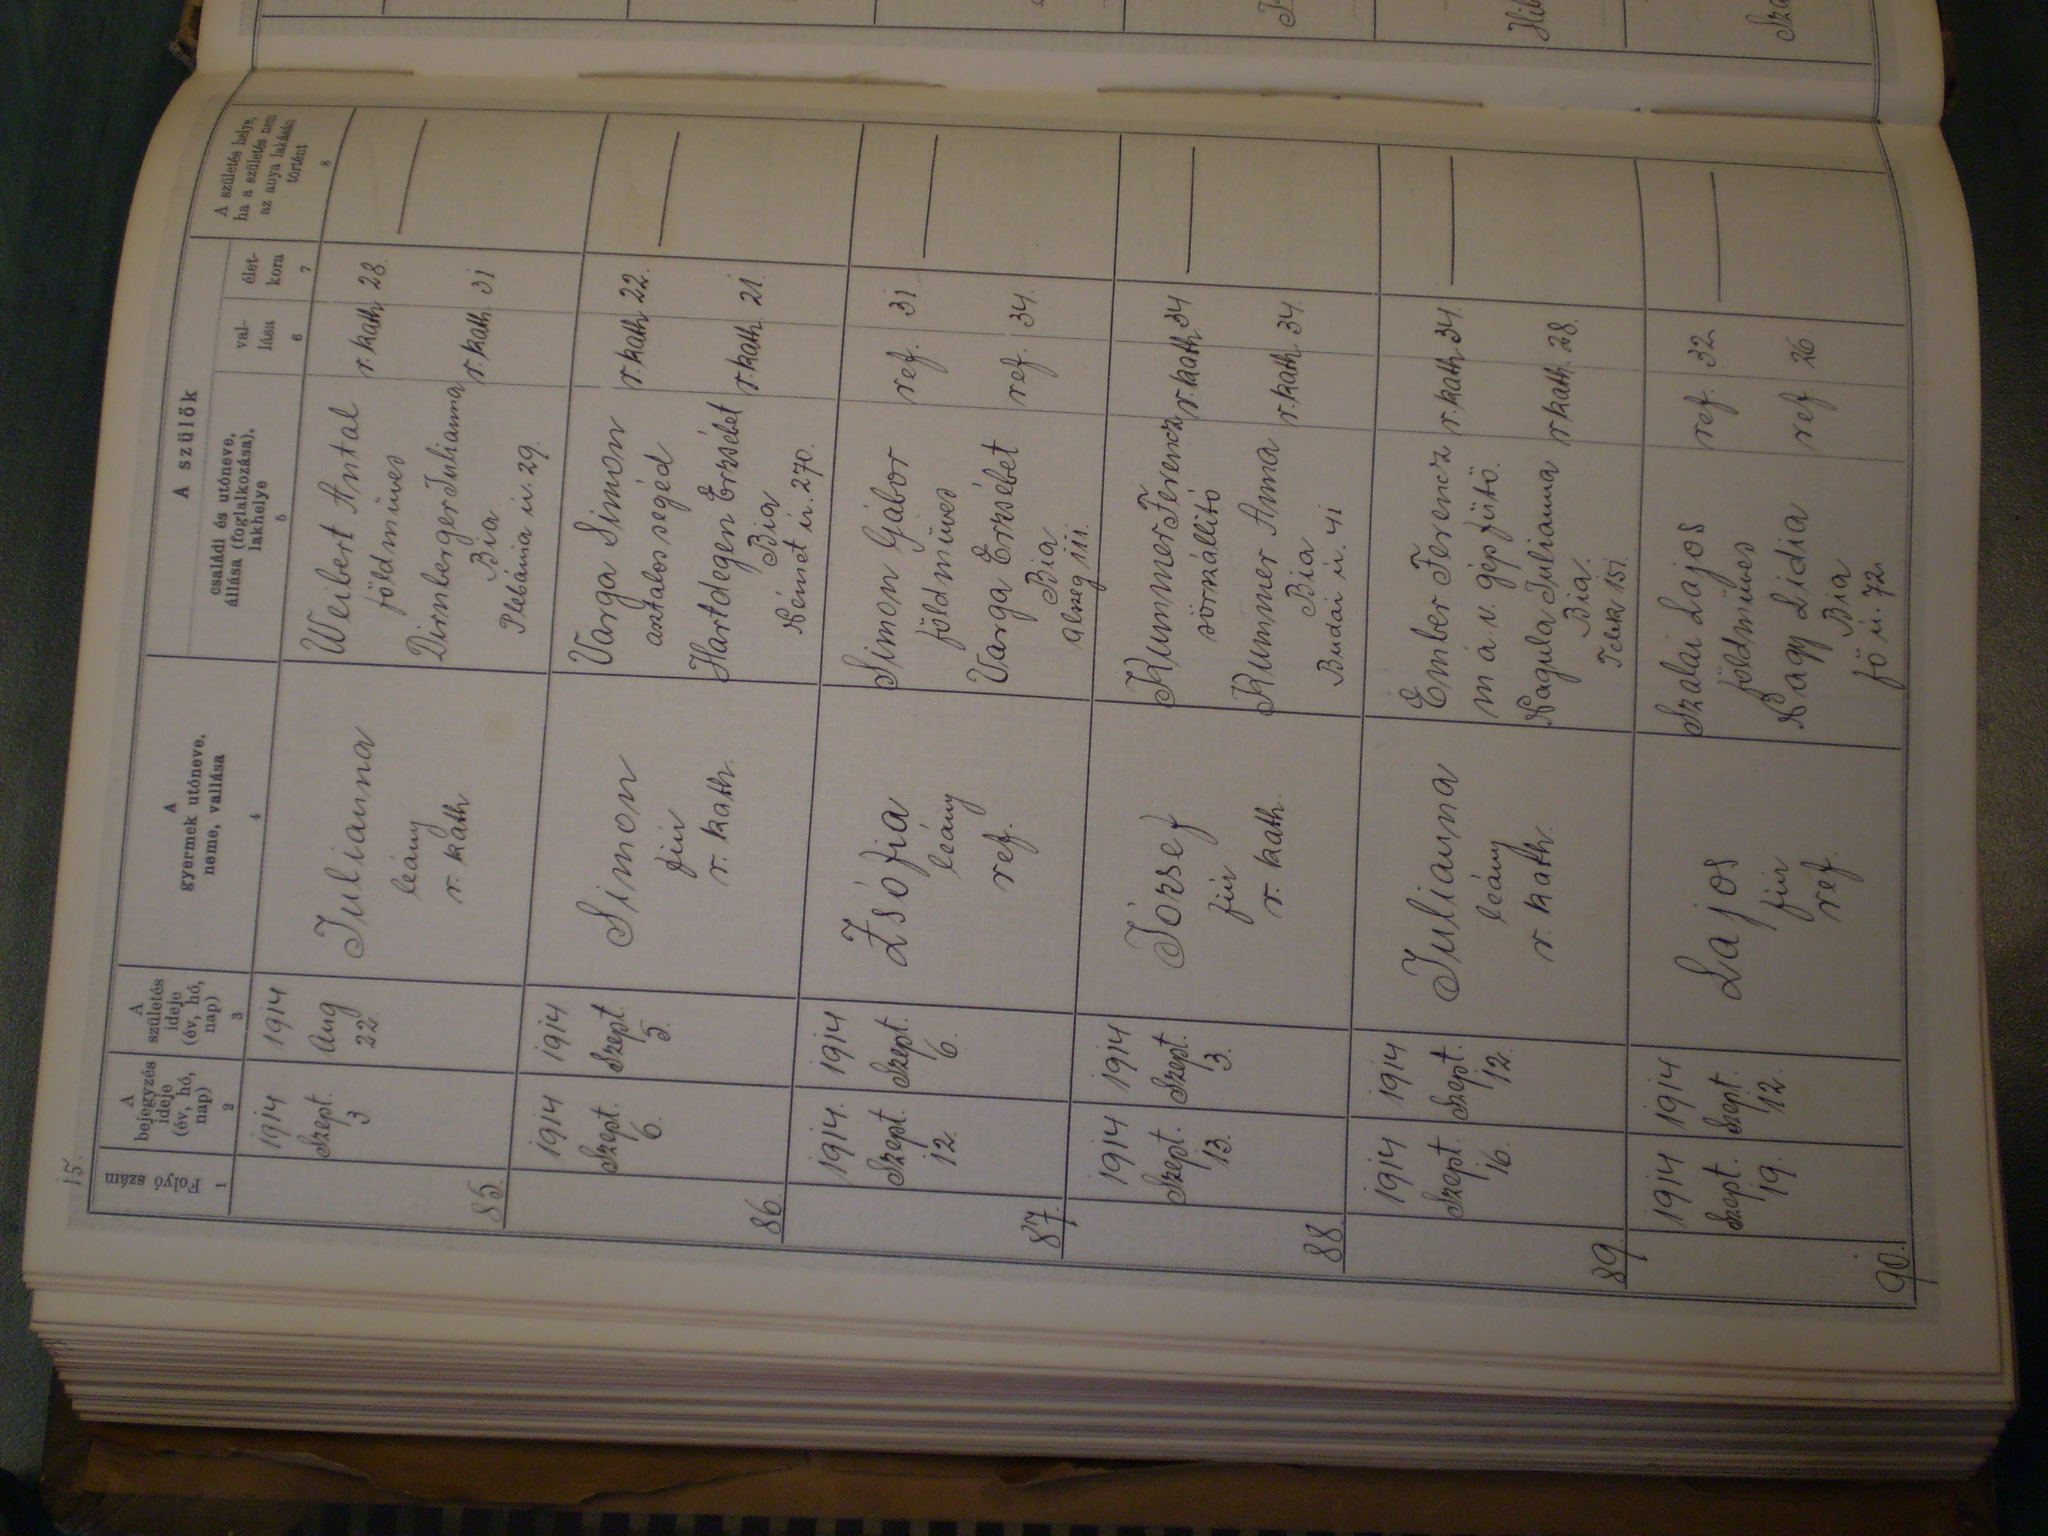 15.
Folyó szám
A bejegyzés ideje (év, hó, nap)
A születés ideje (év, hó, nap)
A gyermek utóneve, neme, vallása
A szülők
családi és utóneve, állása (foglalkozása), lakhelye
vallása
életkora
A születés helye, ha a születés nem az anya lakásán történt
1 2 3 4 5 6 7 8
85.
1914 Szept. 3
1914 Aug 22.
Julianna
leány
r. kath
Weibert Antal r. kath 28.
földmüves
Dirnberger Julianna r. kath. 31
Bia
Plébánia u. 29.
86.
1914 Szept. 6.
1914 Szept. 5.
Simon
fiu
r. kath.
Varga Simon r. kath 22.
asztalos segéd
Hartdegen Erzsébet r. kath. 21.
Bia
Német u. 270.
87.
1914. Szept. 12.
1914 Szept. 6.
Zsófia
leány
ref.
Simon Gábor ref. 31
földmüves
Varga Erzsébet ref. 34.
Bia
alszeg 111.
88.
1914 Szept. 13.
1914 Szept. 3.
József
fiu
r. kath.
Kummer Ferencz r. kath 34
Kummer Anna r. kath. 34.
Bia
Budai u. 41
89.
1914 Szept. 16.
1914 Szept. 12.
Julianna
leány
r. kath.
Ember Ferencz r. kath 34.
m á. v. gépfütö.
Nagula Julianna r kath. 28.
Bia.
Telek 151.
90.
1914 Szept. 19.
1914 Szept. 12.
Lajos
fiu
ref.
Szalai Lajos ref. 32
földmüves
Nagy Lidia ref. 26
Bia
fö u. 72.